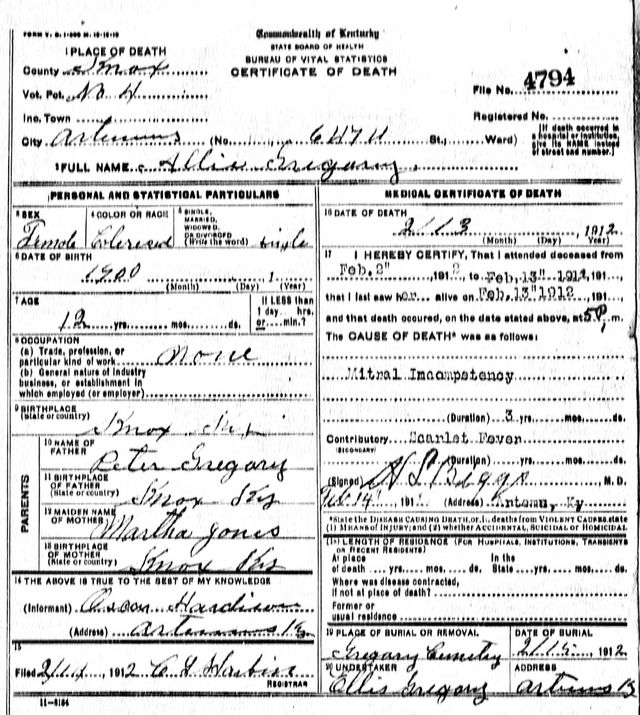 FORM V. S. 1-500 M. 10-10-10
Commonwealth of Kentucky
STATE BOARD OF HEALTH
BUREAU OF VITAL STATISTICS
CERTIFICATE OF DEATH
1 PLACE OF DEATH
County Knox
Vot. Pct. No 4
Inc. Town
City Artemus (No. 6474 St., Ward)
File No. 4794
Registered No.
[If death occurred in a hospital or institution, give its NAME instead of street and number.]
2 FULL NAME Allie Gregory
PERSONAL AND STATISTICAL PARTICULARS
3 SEX
Female
4 COLOR OR RACE
Colered
5 SINGLE, MARRIED, WIDOWED, OR DIVORCED (Write the word)
single
6 DATE OF BIRTH
1900 1
(Month) (Day) (Year)
7 AGE
12 yrs. mos. ds.
If LESS than 1 day hrs. or min.?
8 OCCUPATION
(a) Trade, profession, or particular kind of work None
(b) General nature of industry
business, or establishment in
which employed (or employer)
9 BIRTHPLACE
(State or country)
Knox Ky
PARENTS
10 NAME OF FATHER
Peter Gregory
11 BIRTHPLACE OF FATHER
(State or country)
Knox Ky
12 MAIDEN NAME OF MOTHER
Martha Jones
13 BIRTHPLACE OF MOTHER
(State or country)
Knox Ky
14 THE ABOVE IS TRUE TO THE BEST OF MY KNOWLEDGE
(Informant) Oscar Hardison
(Address) Artemus Ky
15
Filed 2/14 1912
REGISTRAR
11-3184
MEDICAL CERTIFICATE OF DEATH
16 DATE OF DEATH
2/13 1912
(Month) (Day) Year
17 I HEREBY CERTIFY, That I attended deceased from
Feb. 2" ,1912, to Feb. 13" 1912, 191
that I last saw her alive on Feb. 13" 1912, 191
and that death occured, on the date stated above, at 5P. m.
The CAUSE OF DEATH* was as follows:
Mitral Imcompetency
(Duration) 3 yrs. mos. ds.
Contributory Scarlet Fever
(SECONDARY)
(Duration) yrs. mos. ds.
(Signed) H L Biggs M. D.
Feb 14 191 (Address) Artemu, Ky
*State the DISEASE CAUSING DEATH, or, in deaths from VIOLENT CAUSES, state
(1) MEANS OF INJURY; and (2) whether ACCIDENTAL, SUICIDAL or HOMICIDAL
18 LENGTH OF RESIDENCE (FOR HOSPITALS, INSTITUTIONS, TRANSIENTS
OR RECENT RESIDENTS)
At place In the
of death yrs. mos. ds. State yrs. mos. ds.
Where was disease contracted,
if not at place of death?
Former or
usual residence
19 PLACE OF BURIAL OR REMOVAL
Gregory Cemetry
DATE OF BURIAL
2/15, 1912
20 UNDERTAKER
Ellis Gregory
ADDRESS
Artemus Ky